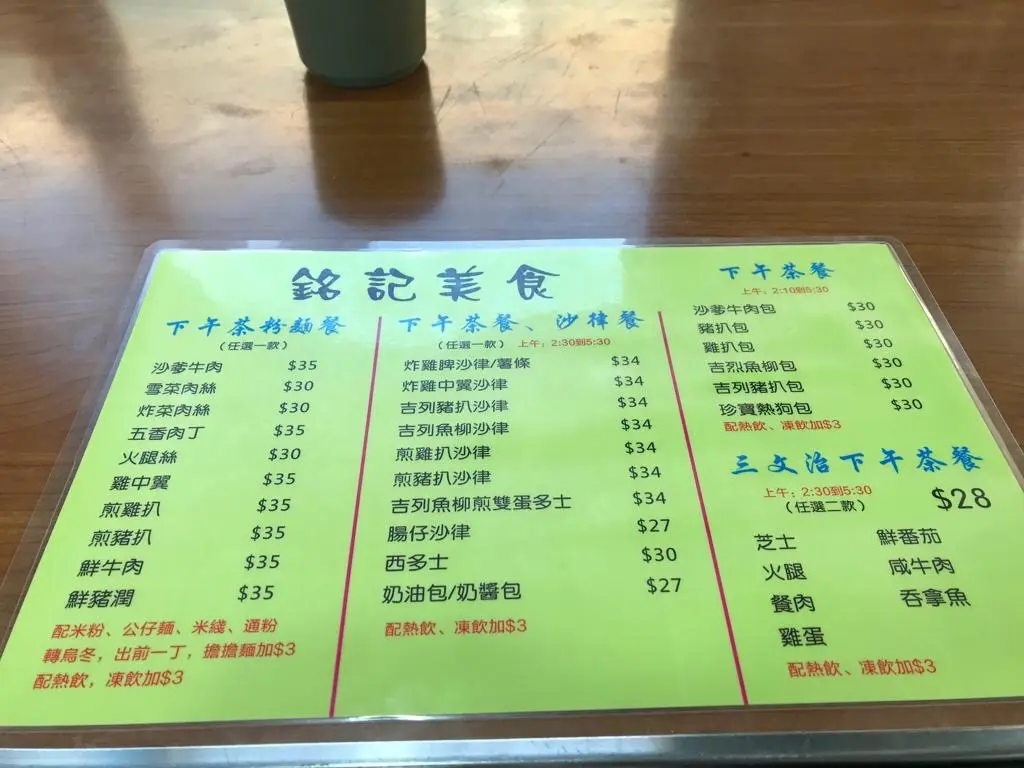 銘記美食
下午茶粉麵餐
(任選一款)
沙爹牛肉 $35
雪菜肉絲 $30
炸菜肉絲 $30
五香肉丁 $35
火腿絲 $30
雞中翼 $35
煎雞扒 $35
煎豬扒 $35
鮮牛肉 $35
鮮豬潤 $35
配米粉、公仔麵、米綫、通粉
轉烏冬,出前一丁,擔擔麵加$3
配熱飲,凍飲加$3
下午茶餐、沙律餐
(任選一款) 上午:2:30到5:30
炸雞脾沙律/薯條 $34
炸雞中翼沙律 $34
吉列豬扒沙律 $34
吉列魚柳沙律 $34
煎雞扒沙律 $34
煎豬扒沙律 $34
吉列魚柳煎雙蛋多士 $34
腸仔沙律 $27
西多士 $30
奶油包/奶醬包 $27
配熱飲、凍飲加$3
下午茶餐
上午:2:10到5:30
沙爹牛肉包 $30
豬扒包 $30
雞扒包 $30
吉烈魚柳包 $30
吉列豬扒包 $30
珍寶熱狗包 $30
配熱飲、凍飲加$3
三文治下午茶餐
上午:2:30到5:30 $28
(任選二款)
芝士 鮮番茄
火腿 咸牛肉
餐肉 吞拿魚
雞蛋
配熱飲、凍飲加$3